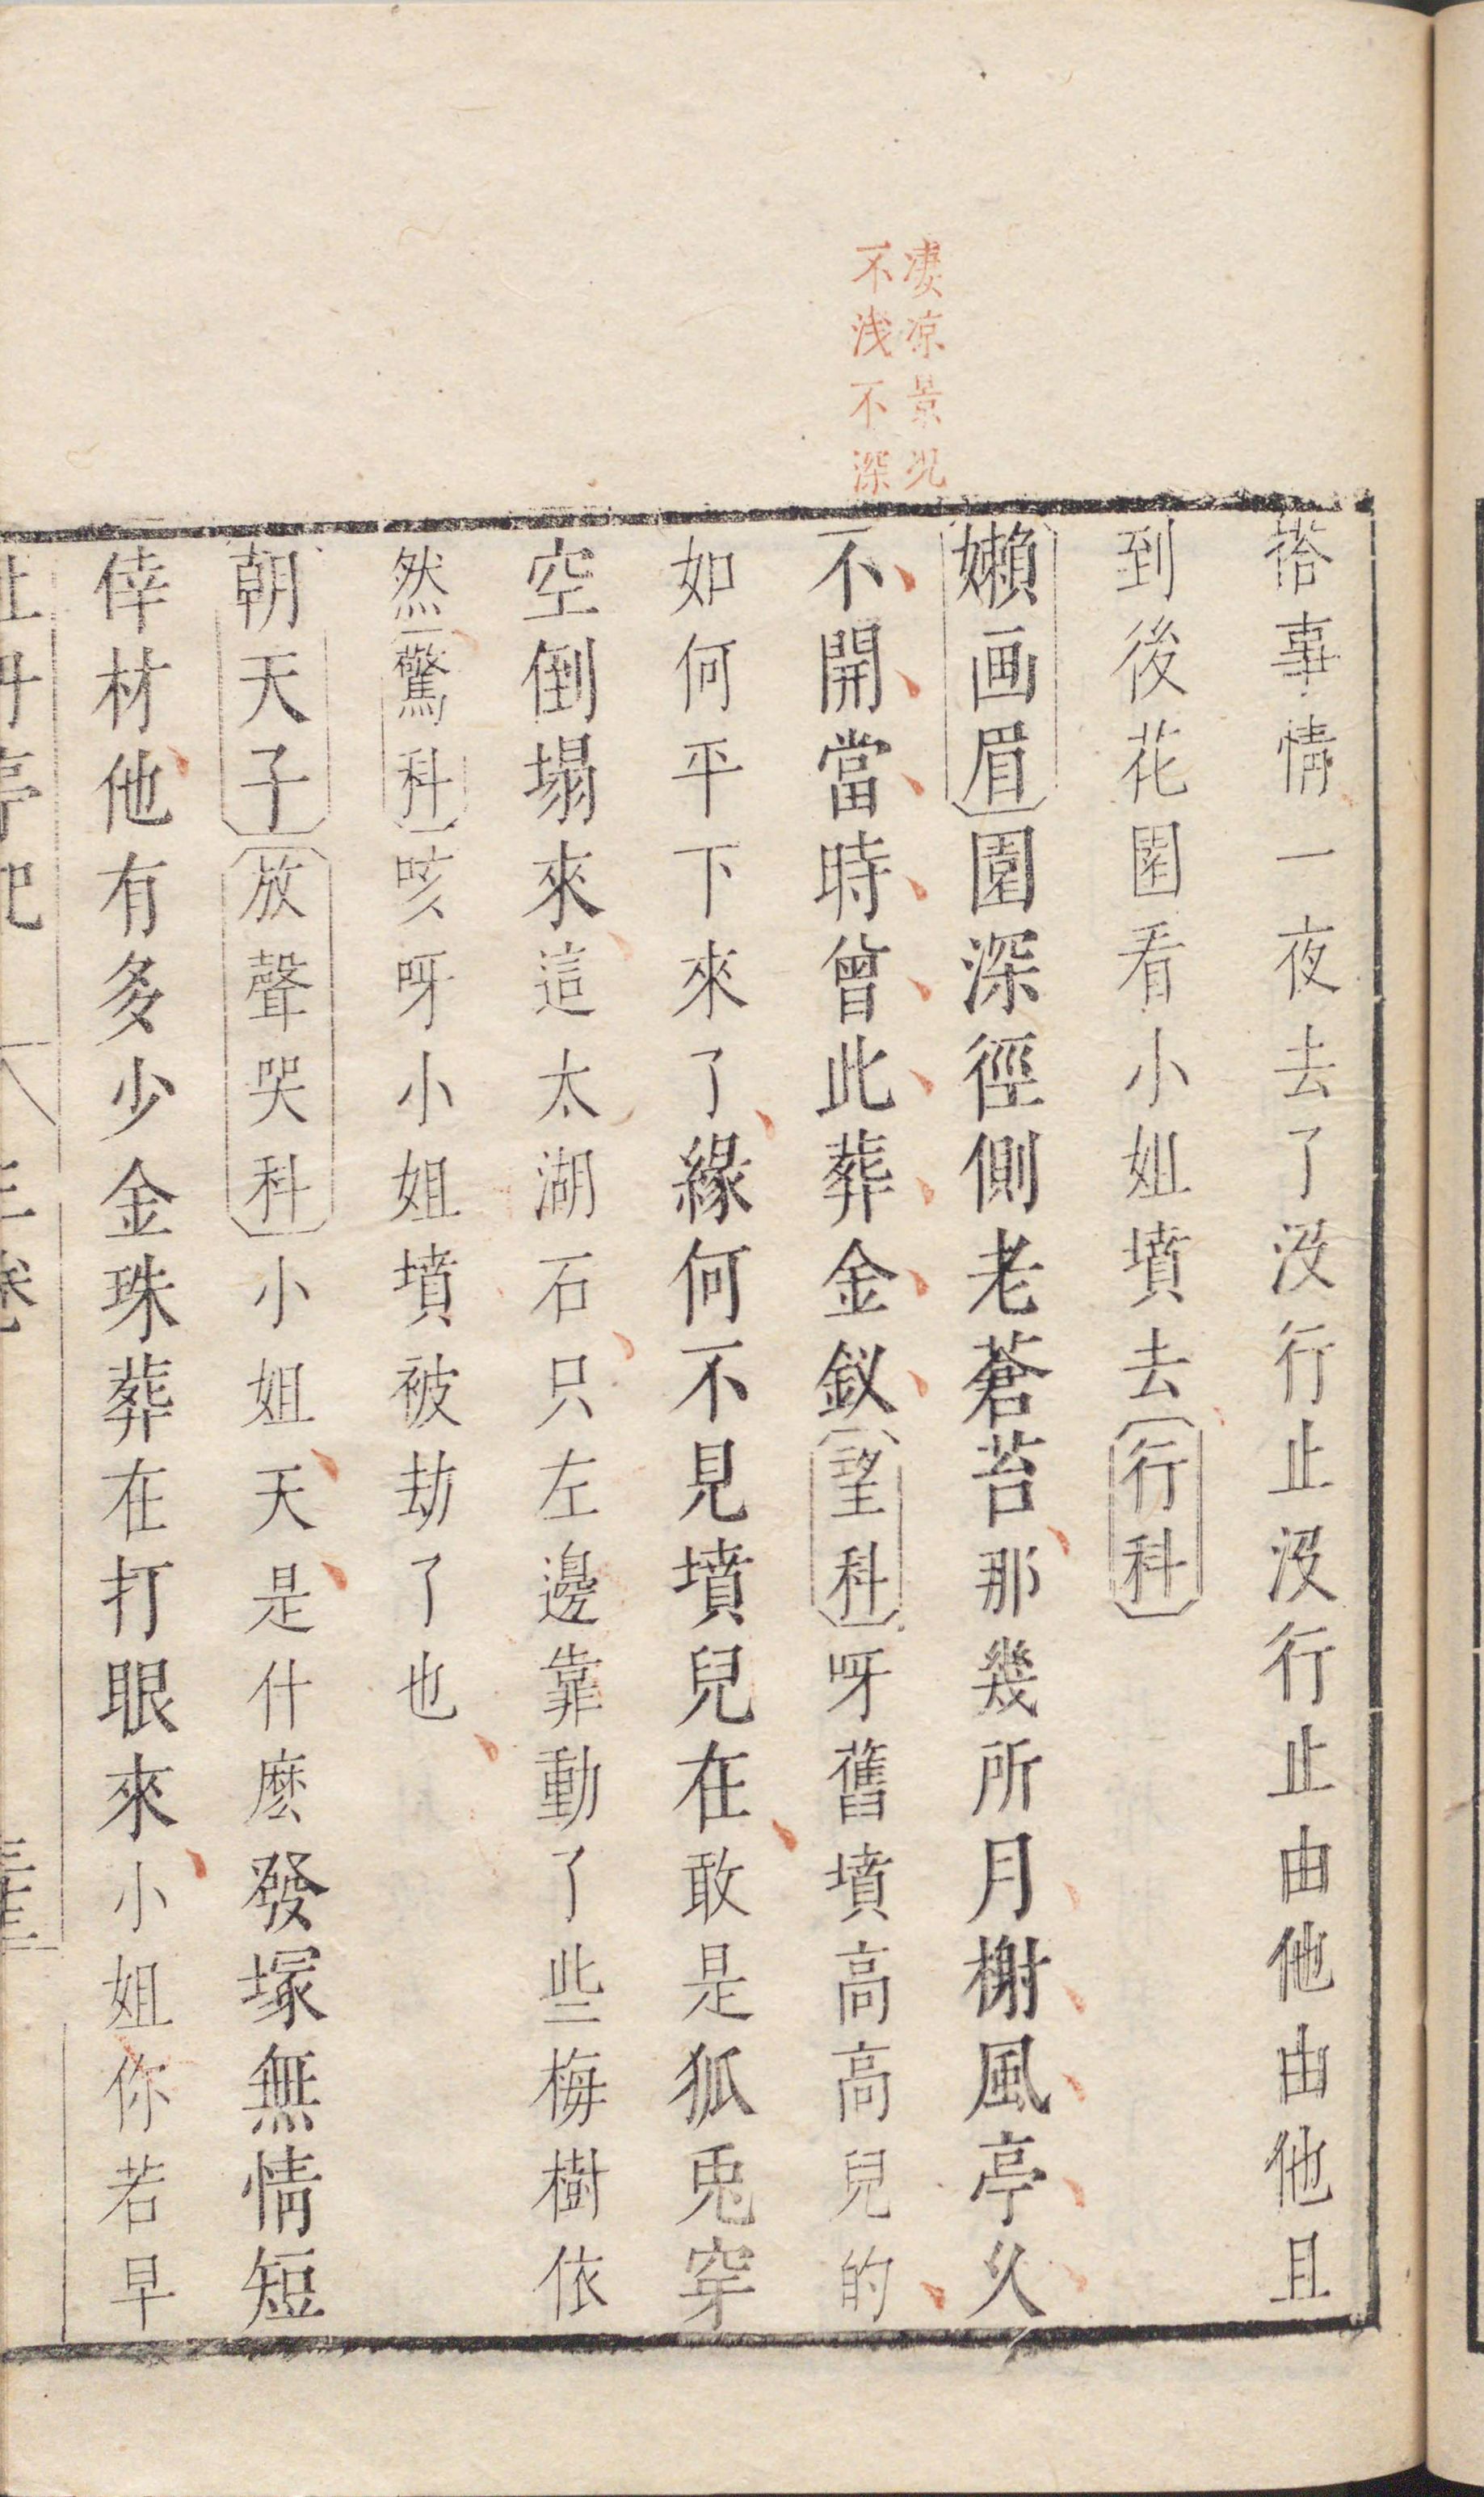 凄凉景况
不浅不深
搭事情一夜去了没行止没行止由他由他且
到後花園看小姐墳去〔行科〕
〔嬾画眉〕園深徑側老蒼苔那幾所月榭風亭久
不開當時曾此葬金釵〔望科〕呀舊墳高高兒的
如何平下來了緣何不見墳兒在敢是狐兎穿
空倒塌來這太湖石只左邊靠動了些梅樹依
然〔驚科〕咳呀小姐墳被劫了也
〔朝天子〕〔放聲哭科〕小姐天是什麽發塚無情短
倖材他有多少金珠葬在打眼來小姐你若早
牡丹亭記 三卷